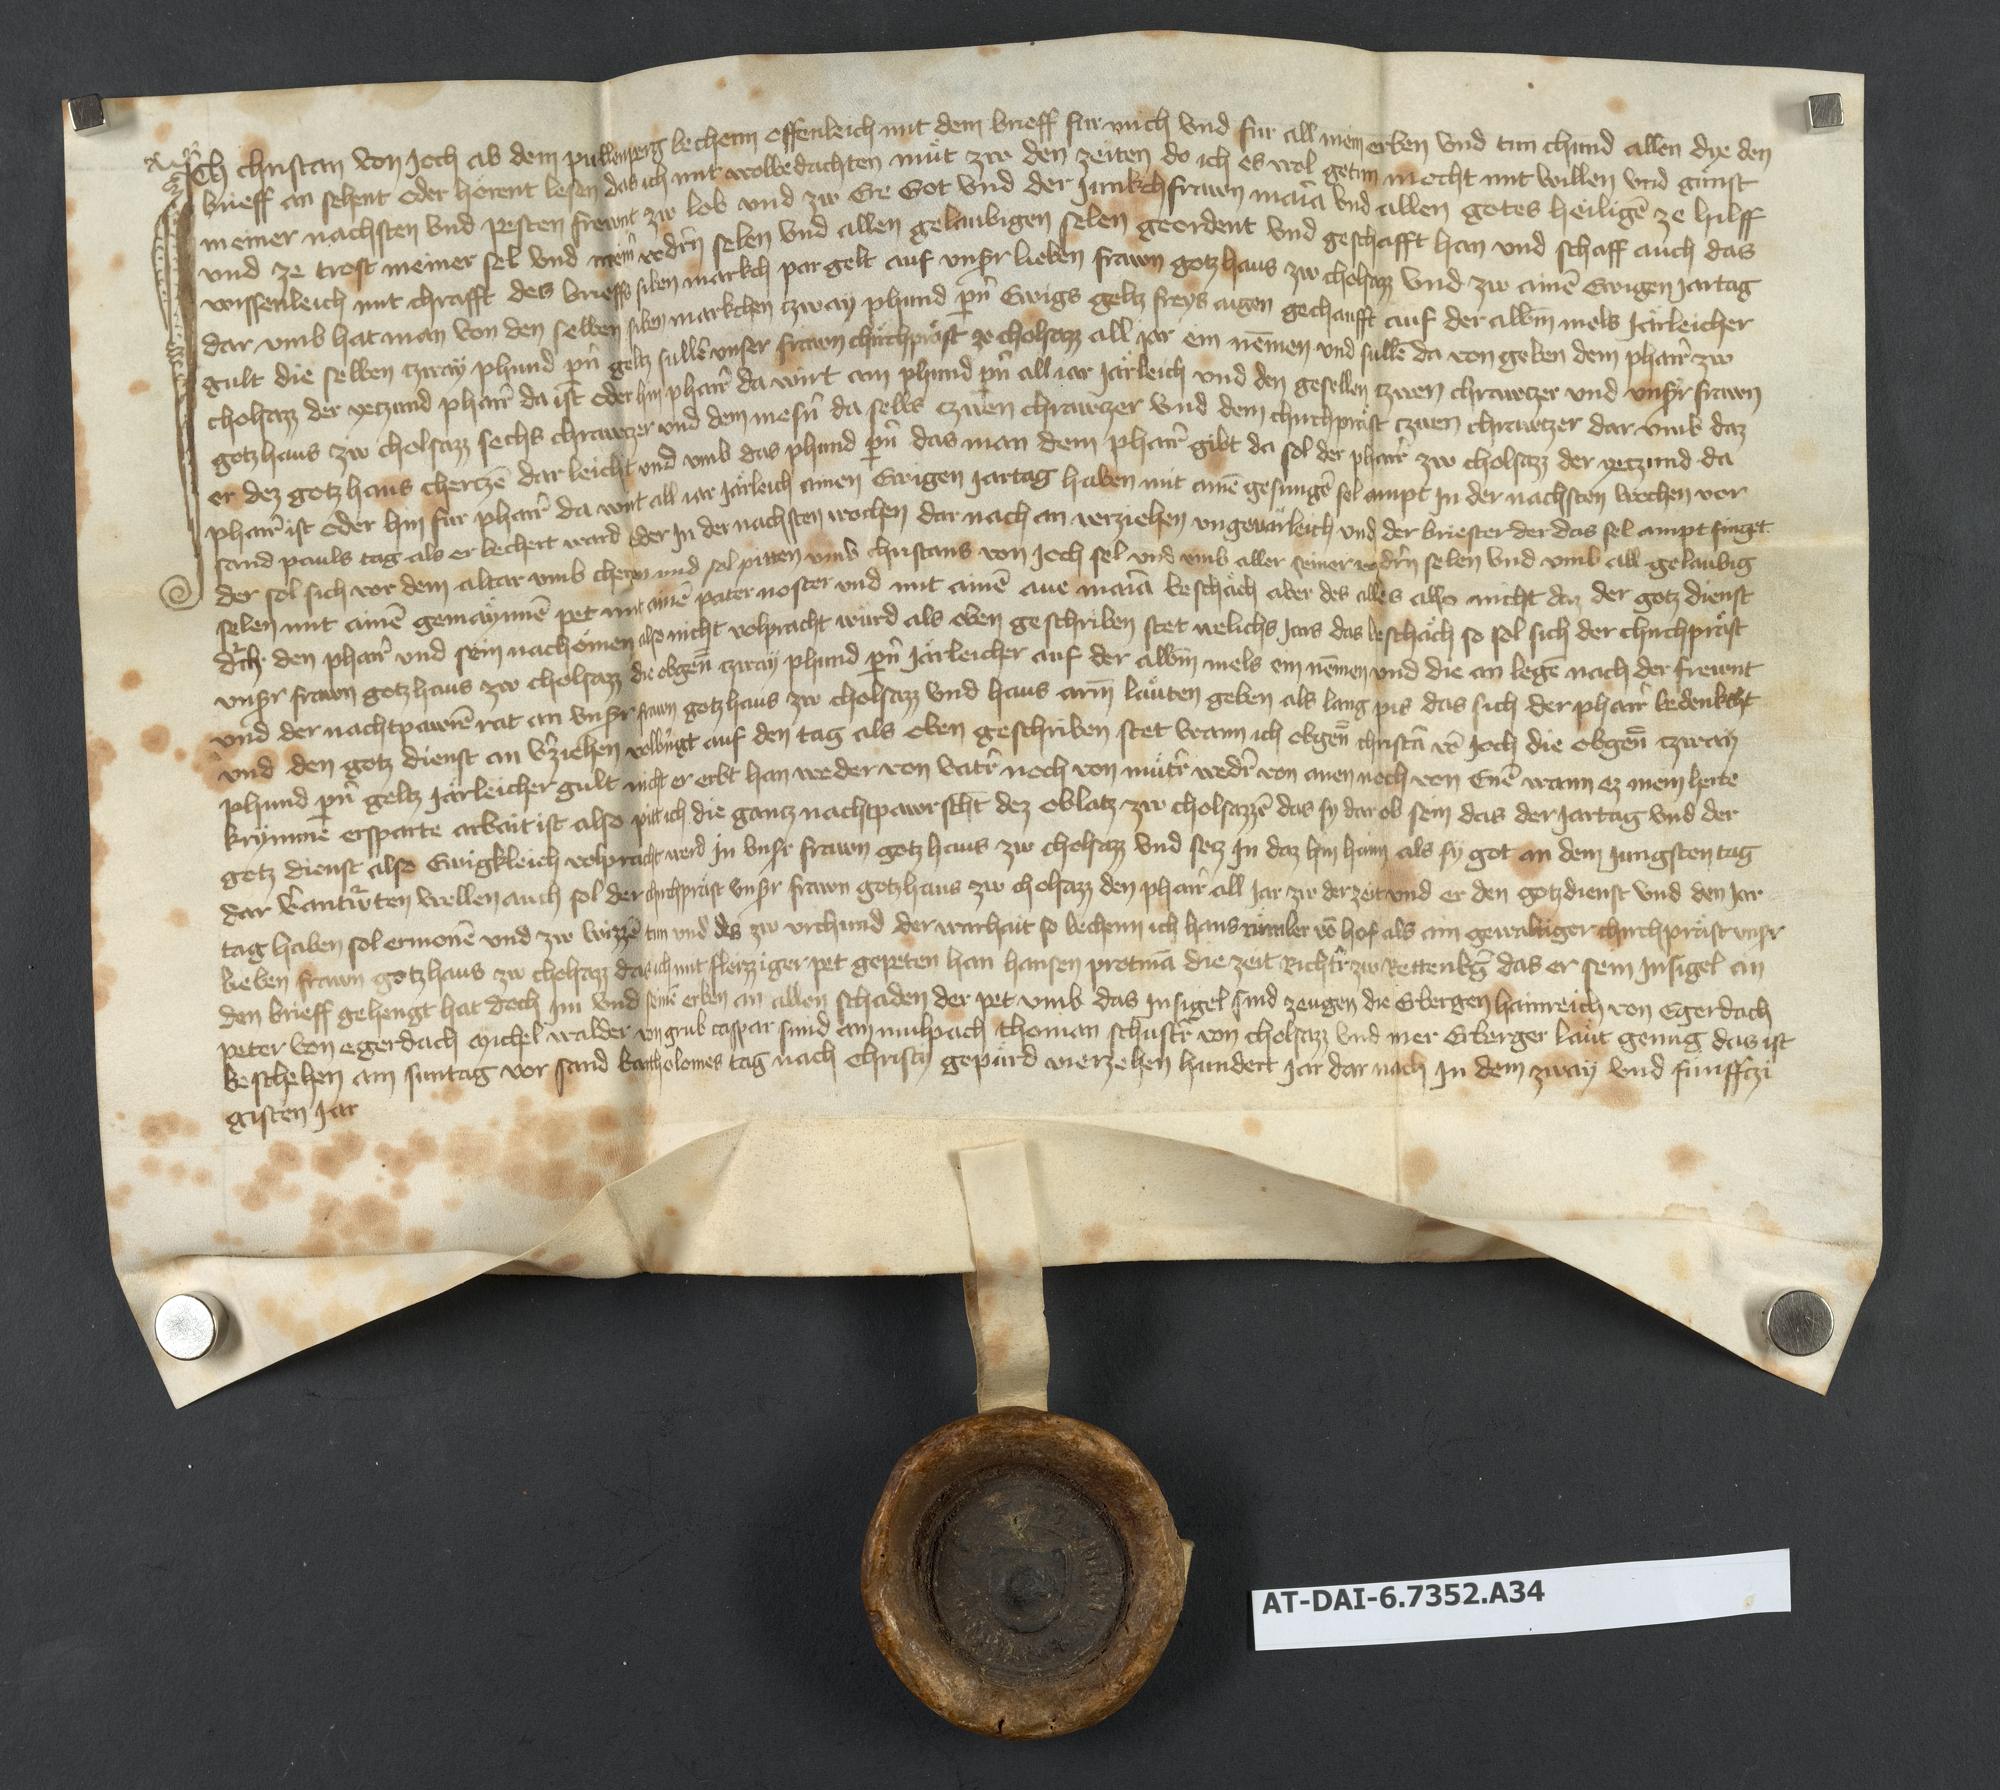 Ich christan von Joch ab dem pullenperg bechenn offenleich mit dem brieff fur mich vnd fur all mein erben vnd tun chund allen dye den
brieff an sehent oder hörent lesen das ich mit wolbedachten müt zw den zeiten do ich es wol getun mocht mit willen vnd gunst
meiner nachsten vnd pesten frewnt zw lob vnd zw Ere Got vnd der Junkchfrawn maria vnd allen gotes heiligē ze hilff
vnd ze trost meiner sel vnd mein̄ vodr̄n selen vnd allen gelaubigen selen geordent vnd geschafft han vnd schaff auch das
wissenleich mit chrafft des brieffs siben markch par gelt auf vnsr lieben frawn gotzhaus zw cholsazz vnd zw ainē Ewigen Jartag
dar vmb hat man von den selben siben markchen zway phund pn̄ Ewigs geltz freys aigen gechaufft auf der albm̄ mels Järleicher
gult die selben czway phund pn̄ geltz sullē vnser frawn chirchpräst ze cholsazz all jar ein nēmen vnd sullē da von geben dem pharr̄ zw
cholsazz der yetzund pharr̄ da ist oder hin pharr̄ da wirt ain phund pn̄ all iar Järleich vnd den gesellen czwen chrawczer vnd vnsr frawn
gotzhaus zw cholsazz sechs chrawczer vnd dem mesn̄ da selbs czwen chrawczer vnd dem chirchpräst czwen chrawtzer dar vmb daz
er dez gotzhaus cherczē dar leicht vnd vmb das phund pn̄ das man dem pharr̄ gibt da sol der pharr̄ zw cholsazz der yetzund da
pharr̄ ist oder hin fur pharr̄ da wirt all iar Järleich ainen Ewigen Jartag haben mit ainē gesungē sel ampt Jn der nachsten wochen vor
sand pauls tag als er bechert ward oder Jn der nachsten wochen dar nach an verziehen vngevärleich vnd der briester der das sel ampt singet
der sol sich vor dem altar vmb cheren vnd sol pitten vmb christans von Joch sel vnd vmb aller seiner vodr̄n selen vnd vmb all gelaubig
selen mit ainē gemaynnē pet mit ainē pater noster vnd mit ainē aue maria beschäch aber des alles also nicht daz der gotz dienst
dr̄ch den pharr̄ vnd sein nachömen also nicht volpracht würd als oben geschriben stet welichs Jars das beschäch so sol sich der chirchpräst
vnsr frawn gotzhaus zw cholsazz die obgen̄ czway phund pn̄ Järleicher auf der albm̄ mels ein nēmen vnd die an legē nach der frewnt
vnd der nachtpawrē rat an vnsr frawn gotzhaus zw cholsazz vnd haus arm̄ läuten geben als lang pis das sich der pharr̄ bedenkcht
vnd den gotz dienst an v̄ziehen volbringt auf den tag als oben geschriben stet wann ich obgen̄ christā vō Joch die obgen̄ czway
phund pn̄ geltz Järleicher gult nicht er erbt han weder von vatr̄ noch von mütr̄ wedr̄ von anen noch von Enē wann ez mein herte
krymmē ersparte arbait ist also pitt ich die gancz nachtpawrschft dez oblatz zw cholsazzē das sy dar ob sein das der Jartag vnd der
gotz dienst also Ewigkleich volpracht werd in vnsr frawn gotzhaus zw cholsazz vnd secz in daz hin haim als sy got an dem Jungsten tag
dar v̄antwr̄ten wellen auch sol der chirchpräst vnsr frawn gotzhaus zw cholsazz den pharr̄ all Jar zw der zeit vnd er den gotzdienst vnd den Jar
tag haben sol ermonē vnd zw wizzē tun vnd des zw vrchund der warhait so bechenn ich hans vō hof als ain gewaltiger chirchpräst vnsr
lieben frawn gotzhaus zw cholsazz das ich mit fleizziger pet gepeten han hansen protmā die zeit Richtr̄ zw Rettenbḡ das er sein Jnsigel an
den brieff gehengt hat doch im vnd seinē erben an allen schaden der pet vmb das Jnsigel sind zeugen die Erbergen hainreich von Egerdach
peter von egerdach michel walder von grub caspar simid am mulpach thoman schustr̄ von cholsazz vnd mer Erberger läut genug das ist
beschehen am suntag vor sand Bartholomes tag nach christy gepürd vierzehen hundert Jar dar nach Jn dem zway vnd funffczi
gisten Jar
AT-DAI-6.7352.A34